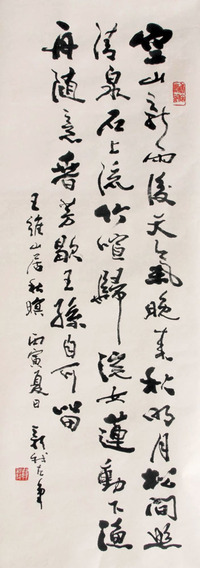 空山新雨後天氣晚来秋明月松間照
清泉石上流竹喧歸浣女蓮動下漁
舟随意春芳歇王孫自可留
王維山居秋暝 丙寅夏日 新我左筆